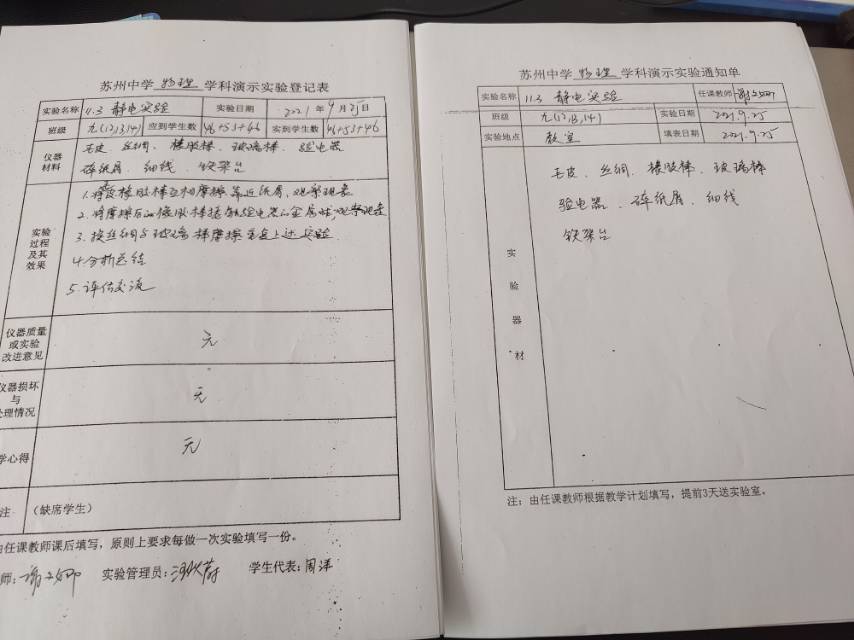 苏州中学 物理 学科演示实验登记表
实验名称 11.3 静电实验 实验日期 2021 年 9 月 25 日
班级 九(12,13,14) 应到学生数 46+53+46 实到学生数 46+53+46
仪器材料 毛皮 丝绸、橡胶棒、玻璃棒、验电器
碎纸屑、细线、铁架台
实验过程及其效果
1. 橡胶棒互相摩擦靠近纸屑,观察现象
2. 将摩擦后的橡胶棒接触验电器的金属球,观察现象
3. 换丝绸与玻璃棒摩擦重复上述实验
4. 分析总结
5. 评估交流
仪器质量或实验改进意见 无
仪器损坏与处理情况 无
学心得 无
注 (缺席学生)
由任课教师课后填写,原则上要求每做一次实验填写一份。
师: 实验管理员: 学生代表: 周洋
苏州中学 物理 学科演示实验通知单
实验名称 11.3 静电实验 任课教师
班级 九(12,13,14) 实验日期 2021.9.25
实验地点 教室 填表日期 2021.9.25
实验器材
毛皮、丝绸、橡胶棒、玻璃棒
验电器、碎纸屑、细线
铁架台
注:由任课教师根据教学计划填写,提前3天送实验室。